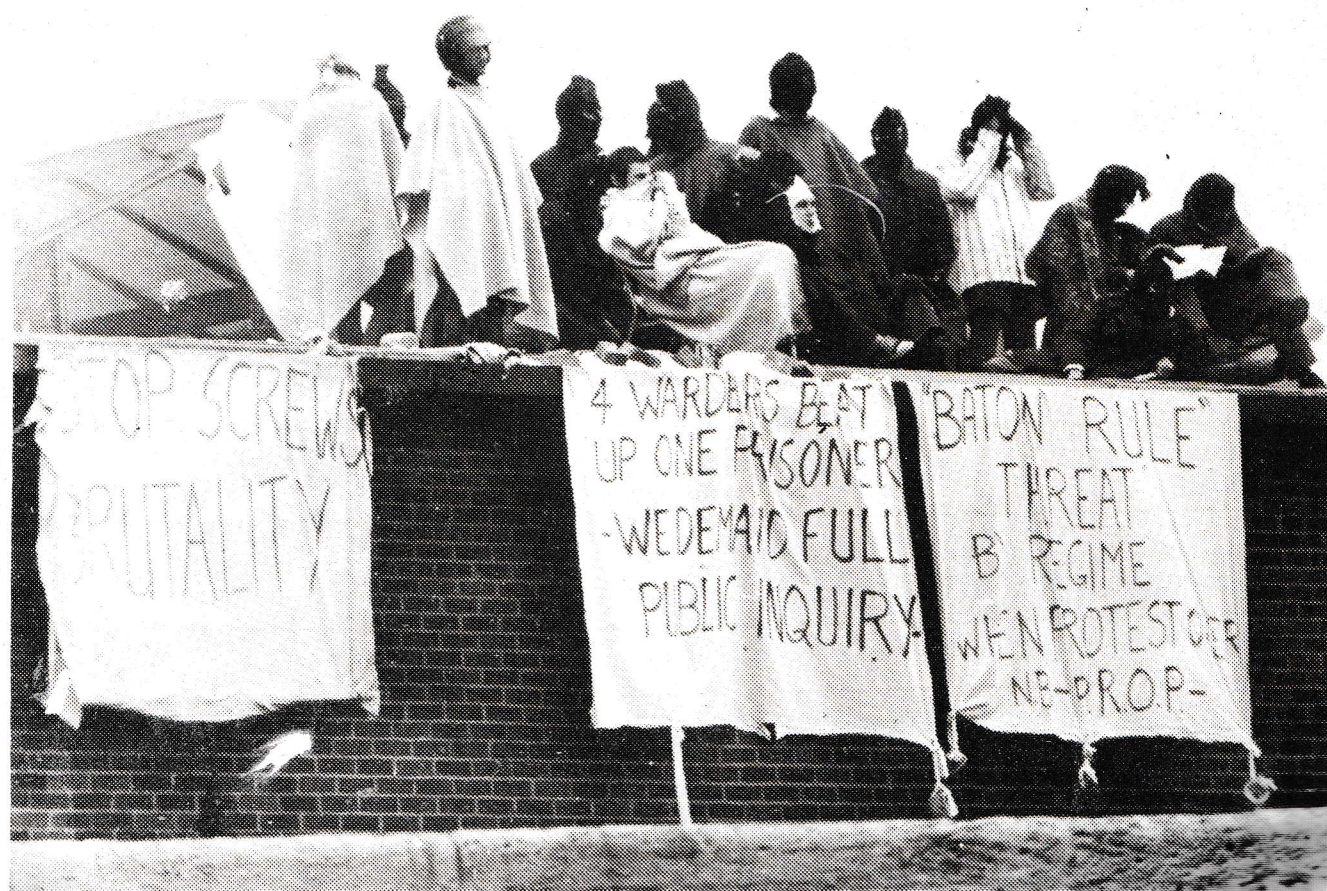 STOP SCREWS
BRUTALITY
4 WARDERS BEAT
UP ONE PRISONER
-WE DEMAND FULL
PUBLIC INQUIRY.
"BATON RULE"
THREAT
BY REGIME
WHEN PROTEST OVER
-P.R.O.P-